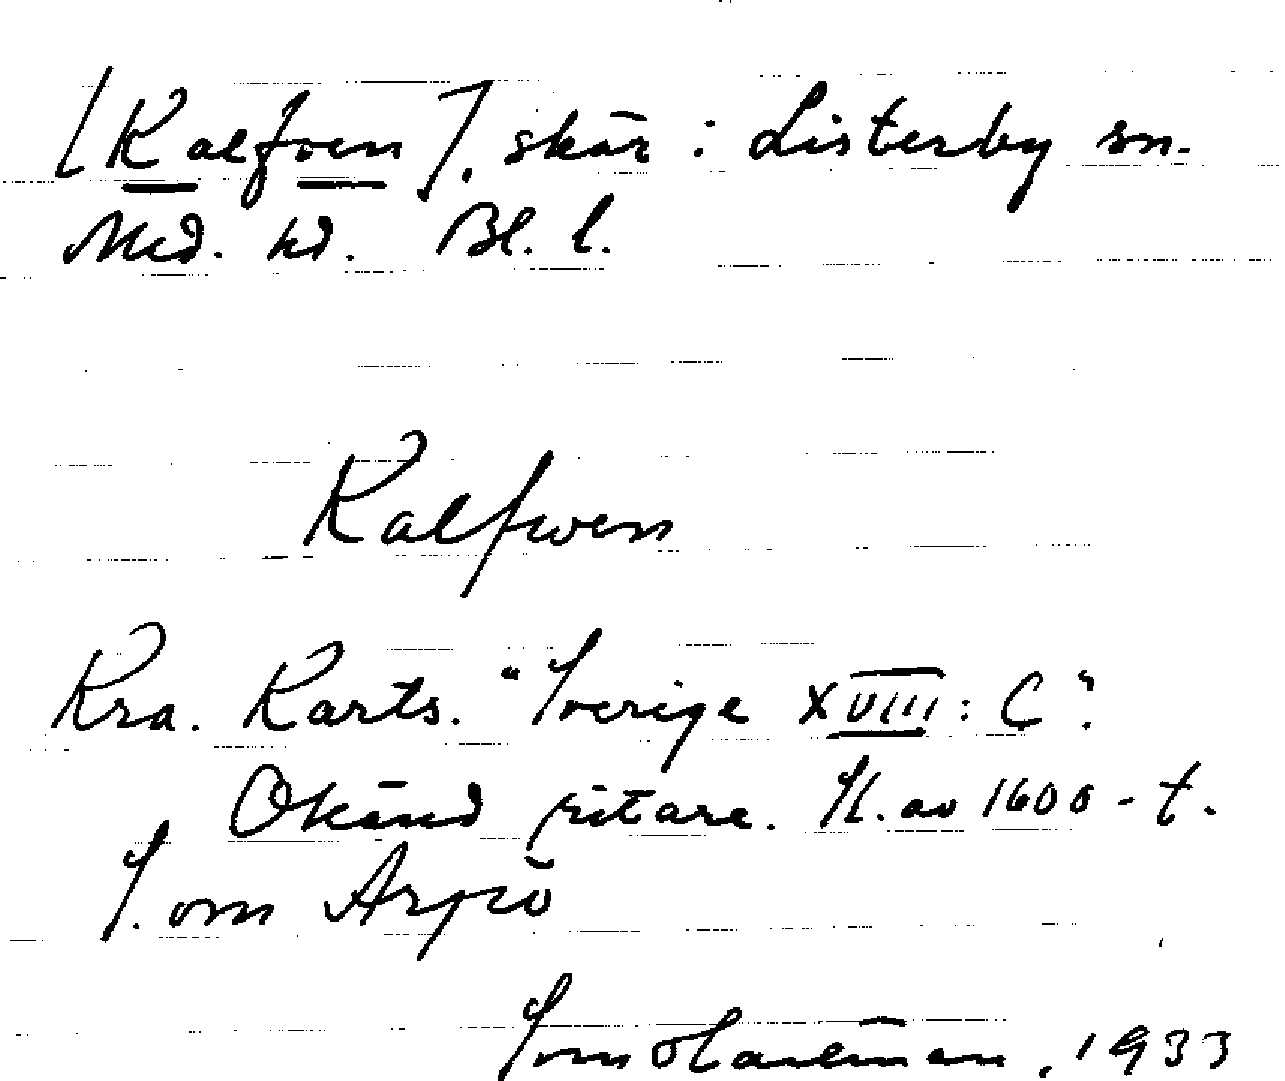 [Kalfven]. skär: Listerby sn.
Med. hd. Bl. l.
Kalfwen
Kra. Karts. "Sverige XVIII: C".
Okänd ritare. Sl. av 1600-t.
S. om Arpö
1933